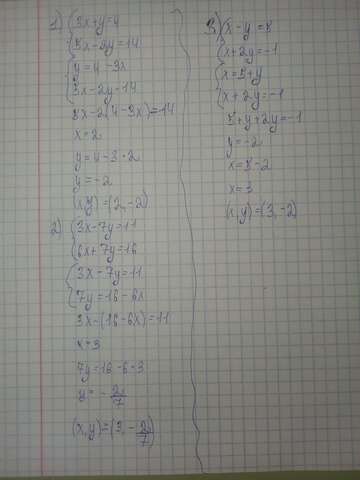 1) { 3x+y=4
{ 5x-2y=14
{ y=4-3x
{ 5x-2y=14
5x-2(4-3x)=14
x=2
y=4-3·2
y=-2
(x,y)=(2,-2)
2) { 3x-7y=11
{ 6x+7y=16
{ 3x-7y=11
{ 7y=16-6x
3x-(16-6x)=11
x=3
7y=16-6·3
y=-2/7
(x,y)=(3,-2/7)
3) { x-y=5
{ x+2y=-1
{ x=5+y
{ x+2y=-1
5+y+2y=-1
y=-2
x=5-2
x=3
(x,y)=(3,-2)